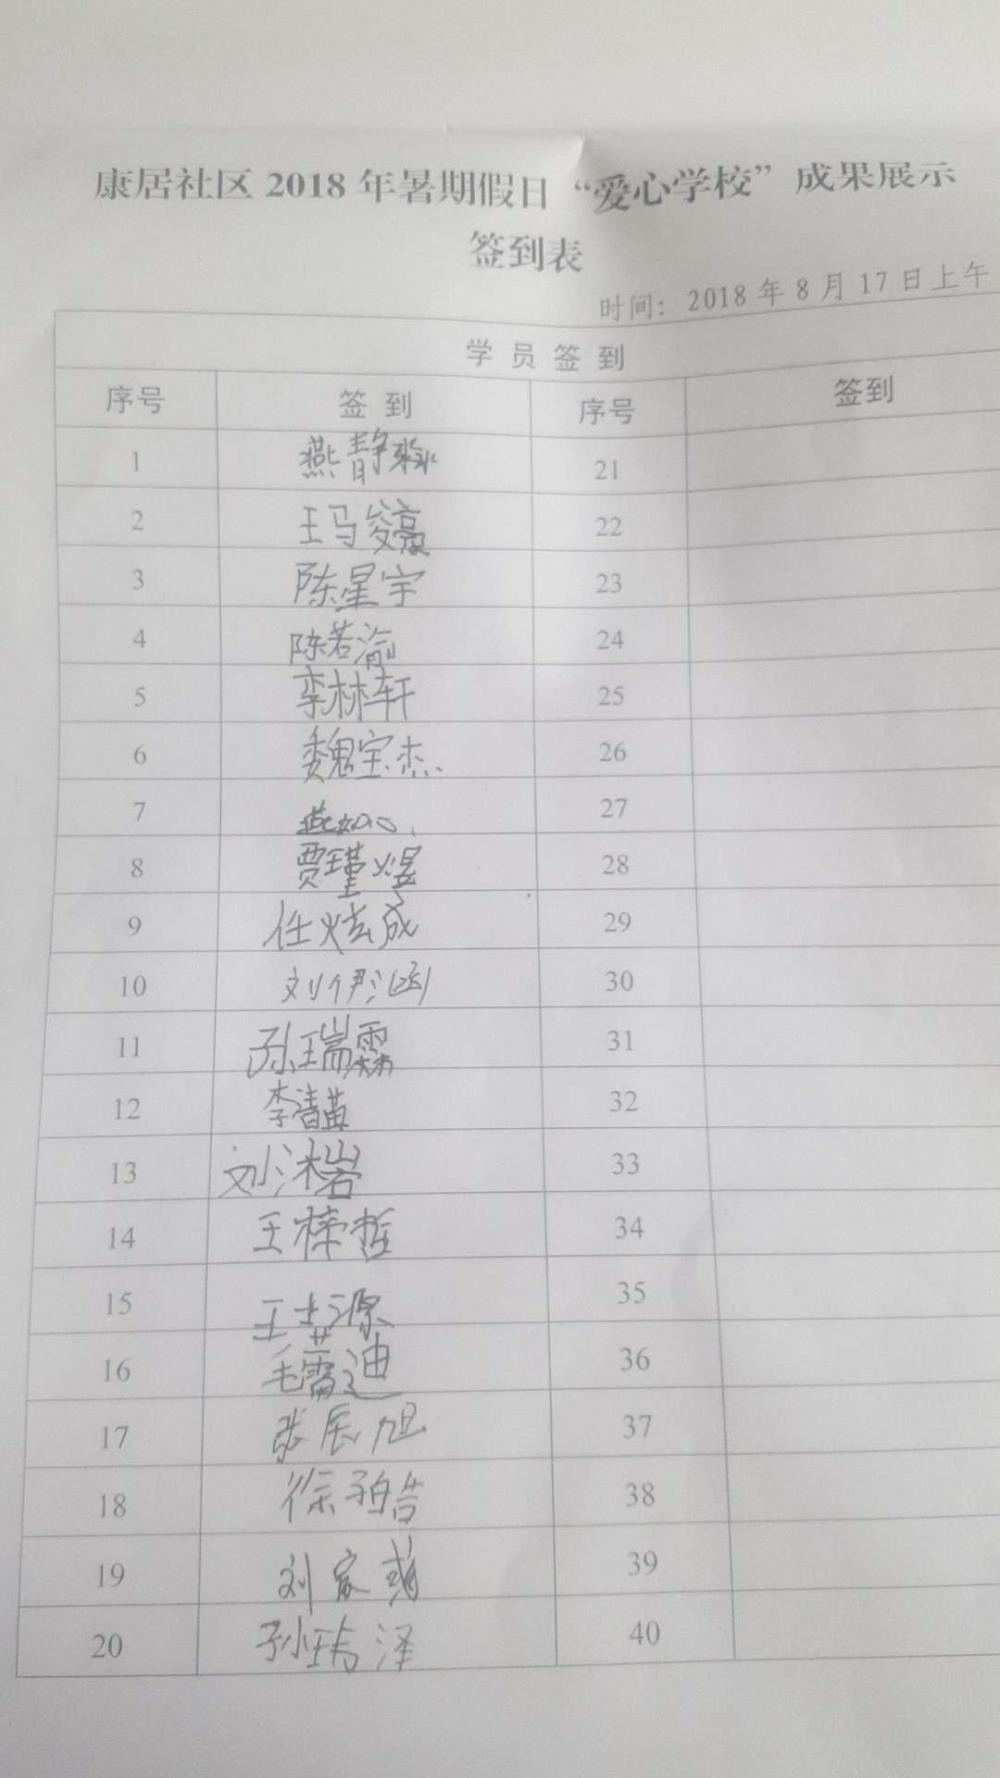 康居社区 2018 年暑期假日“爱心学校”成果展示
签到表
时间：2018 年 8 月 17 日上午
学 员 签 到
序号 签 到 序号 签到
1 燕静 21
2 王马俊 22
3 陈星宇 23
4 陈若渝 24
5 李林轩 25
6 魏宝杰 26
7 燕如心 27
8 贾瑾煜 28
9 任炫成 29
10 刘伊涵 30
11 孙瑞霖 31
12 李清菡 32
13 刘沐岩 33
14 王梓哲 34
15 王志源 35
16 毛蕾迪 36
17 张辰旭 37
18 徐皓 38
19 刘家彧 39
20 孙玮泽 40